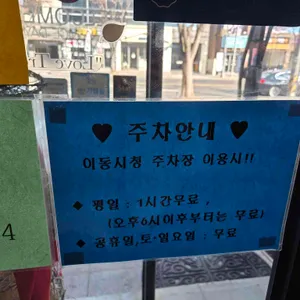 OME
"Love Tr
♥ 주차안내 ♥
이동시청 주차장 이용시!!
◆ 평일 : 1시간무료 ,
(오후6시이후부터는 무료)
◆ 공휴일,토·일요일 : 무료
4